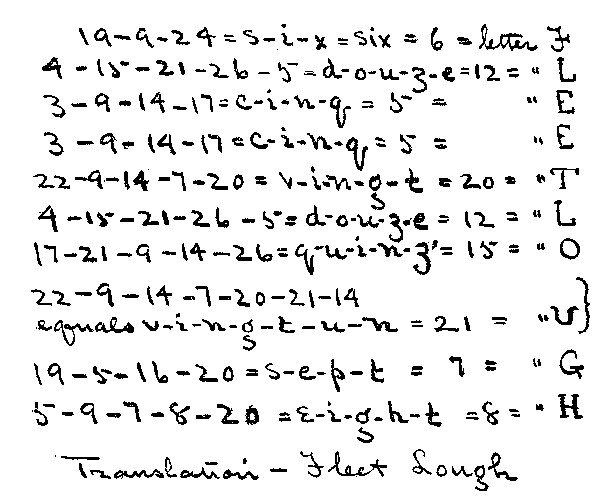 19-9-24 = s-i-x = six = 6 = letter F
4-15-21-26-5 = d-o-u-z-e = 12 = " L
3-9-14-17 = c-i-n-q = 5 = " E
3-9-14-17 = c-i-n-q = 5 = " E
22-9-14-7-20 = v-i-n-g-t = 20 = " T
4-15-21-26-5 = d-o-u-z-e = 12 = " L
17-21-9-14-26 = q-u-i-n-z = 15 = " O
22-9-14-7-20-21-14
equals v-i-n-g-t-u-n = 21 = " U}
19-5-16-20 = s-e-p-t = 7 = " G
5-9-7-8-20 = E-i-g-h-t = 8 = " H
Translation - Fleet Lough